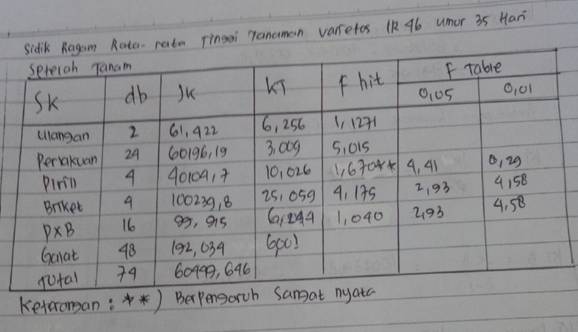 Sidik Ragam Rata-rata Tinggi Tanaman varietas IR 46 Umur 35 Hari
Setelah Tanam
SK db JK KT F hit F Table
0,05 0,01
Ulangan 2 61,422 6,256 1,1271
Perlakuan 24 60196,19 3,009 5,015
Pirill 4 40104,7 10,026 1,670** 4,41 0,29
Briket 4 100239,8 25,059 4,175 2,93 4,58
PXB 16 99,915 6,244 1,040 2,93 4,58
Galat 48 192,034 6001
Total 74 60499,646
Keterangan : **) Berpengaruh Sangat nyata